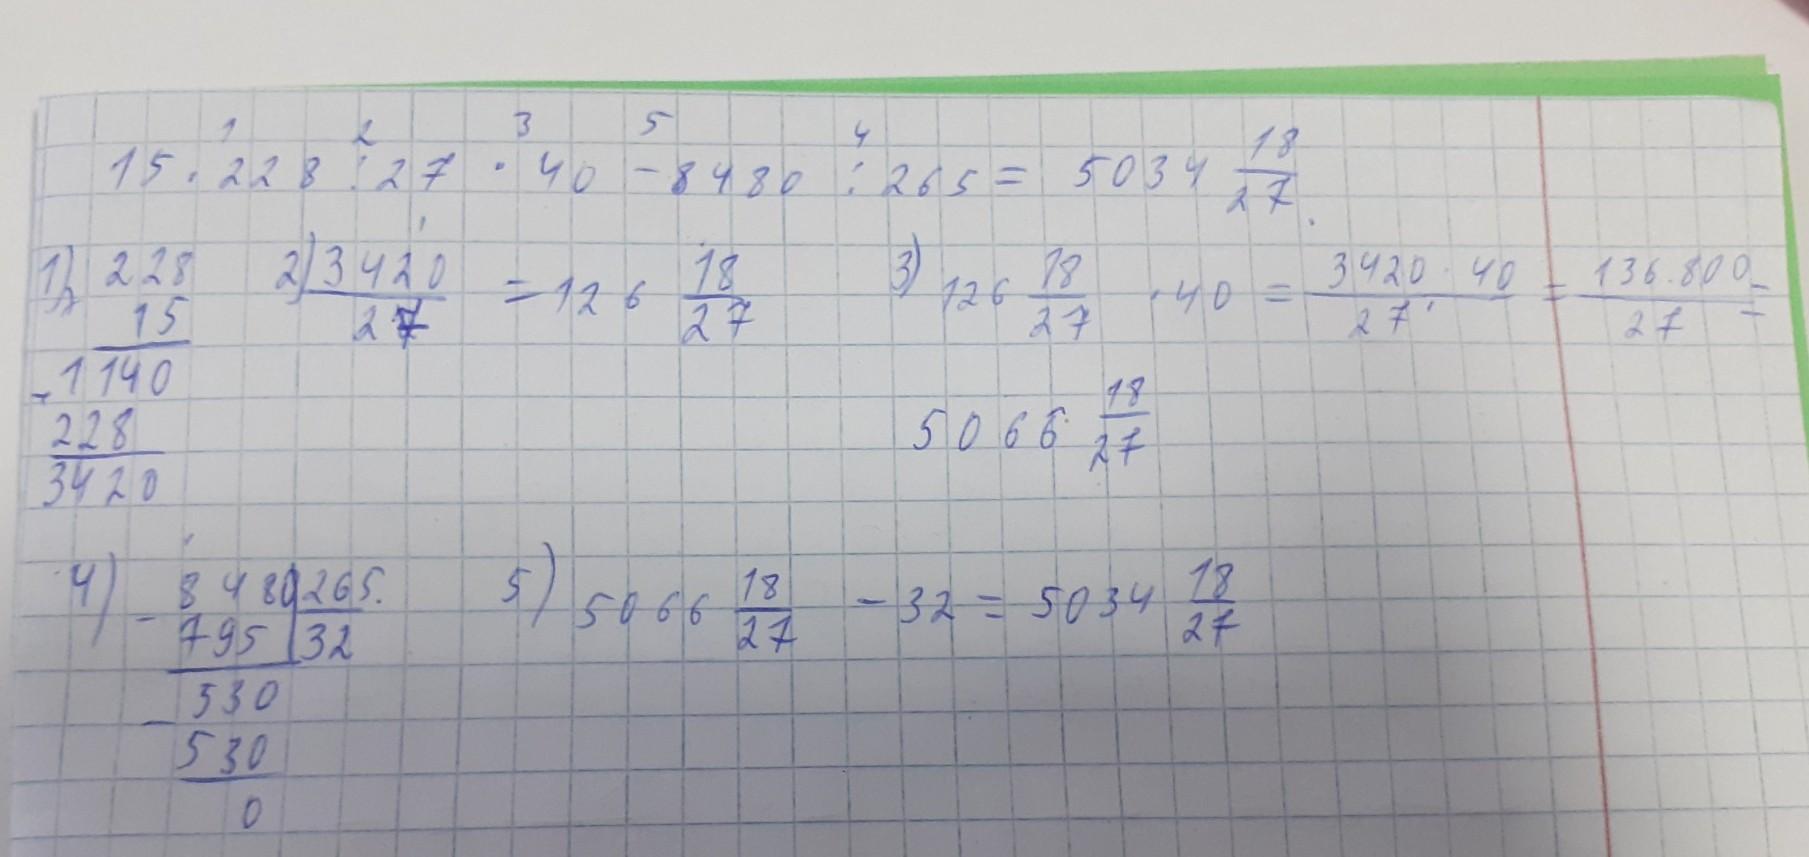 1 2 3 5 4
15 · 228 : 27 · 40 - 8480 : 265 = 5034 18/27.
1) 228 2) 3420/27 = 126 18/27 3) 126 18/27 · 40 = 3420 · 40/27 = 136.800/27 =
15
1140
228
3420
5066 18/27
4) - 8480 265. 5) 5066 18/27 - 32 = 5034 18/27
795 32
530
- 530
0